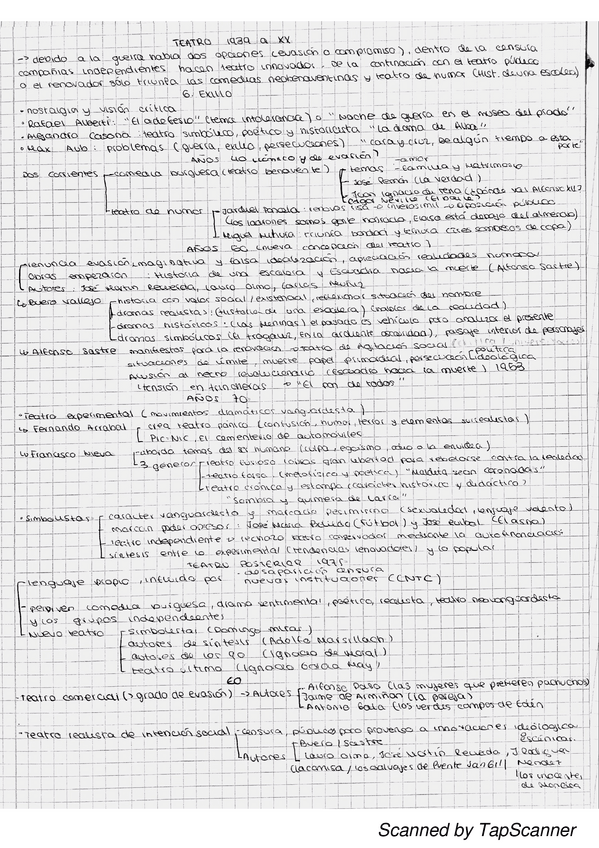 TEATRO 1939 a XX
-> debido a la guerra había dos opciones (evasión o compromiso), dentro de la censura
compañías independientes hacían teatro innovador. De la continuación con el teatro público
o el renovador sólo triunfa las comedias neobenaventinas y teatro de humor (Hist. de una escalera)
6. EXILIO
• nostalgia y visión crítica
• Rafael Alberti: "El adefesio" (tema intolerancia) o "Noche de guerra en el museo del prado"
• Alejandro Casona: teatro simbólico, poético y historicista "La dama de Alba"
• Max Aub: problemas (guerra, exilio, persecuciones) "cara y cruz, De algún tiempo a esta parte"
AÑOS 40 (cómico y de evasión)
Dos corrientes comedia burguesa (teatro benavente) temas - familia y matrimonio - amor
José Pemán (la verdad)
Juan Ignacio de tena (¿dónde vas Alfonso XII?
Edgar Neville (El baile)
teatro de humor Jardiel Poncela: renovó risa -> inverosímil -> oposición público
(los ladrones somos gente honrada, Eloísa está debajo del almendro)
Miguel Mihura: triunfa bondad y ternura (tres sombreros de copa)
AÑOS 60 (nueva concepción del teatro)
renuncia evasión, imaginativa y falsa idealización, apreciación realidades humanas
Obras empezaron: Historia de una escalera y Escuadra hacia la muerte (Alfonso Sastre)
Autores: José Martín Recuerda, Lauro Olmo, Carlos Muñiz
Buero Vallejo historia con valor social/existencial, reflexionar situación del hombre
dramas realistas: (Historia de una escalera) (reflejo de la realidad)
dramas históricos: (Las Meninas) el pasado es vehículo para analizar el presente
dramas simbólicos (El tragaluz, En la ardiente oscuridad), paisaje interior de personajes
Alfonso Sastre manifiestos para la renovación -> teatro de Agitación social política
situaciones de límite, muerte papel primordial, persecución ideológica
Alusión al hecho revolucionario (escuadra hacia la muerte) 1953
"tensión en trincheras -> "El pan de todos"
AÑOS 70
• Teatro experimental (movimientos dramáticos vanguardista)
Fernando Arrabal crea teatro pánico (confusión, humor, terror y elementos surrealistas)
Pic-Nic, El cementerio de automóviles
Francisco Nieva aborda temas del ser humano (culpa, egoísmo, odio o la envidia)
3 géneros teatro furioso gran libertad para rebelarse contra la realidad
teatro farsa (metafísica y poética) "Maldita sean coronadas"
teatro crónica y estampa (carácter histórico y didáctico)
"Sombra y quimera de Larra"
• Simbolistas carácter vanguardista y marcado pesimismo (sexualidad, lenguaje violento)
marcan poder opresor: José María Bellido (Fútbol) y José Ruibal (El asno)
teatro independiente -> rechazo teatro conservador mediante la autofinanciación
síntesis entre lo experimental (tendencias renovadores) y lo popular
TEATRO POSTERIOR 1975
- desaparición censura
lenguaje propio, influido por nuevas instituciones (CNTC)
perviven comedia burguesa, drama sentimental, poética, realista, teatro neovanguardista
y los grupos independientes
Nuevo teatro simbolista (Domingo Miras)
autores de síntesis (Adolfo Marsillach)
autores de los 90 (Ignacio de Moral)
teatro último (Ignacio García May)
60
- Teatro comercial (> grado de evasión) -> Autores Alfonso Paso (las mujeres que prefieren pachuchos)
Jaime de Armiñán (la pareja)
Antonio Gala (los verdes campos de Edén
- Teatro realista de intención social censura, público poco provenso a innovaciones ideológica
Escénicas.
Autores Buero/Sastre
Lauro Olmo, José Martín Recuerda, J Rodríguez Méndez
(La camisa/los salvajes de Puente San Gil/ los inocentes de Moncloa
Scanned by TapScanner